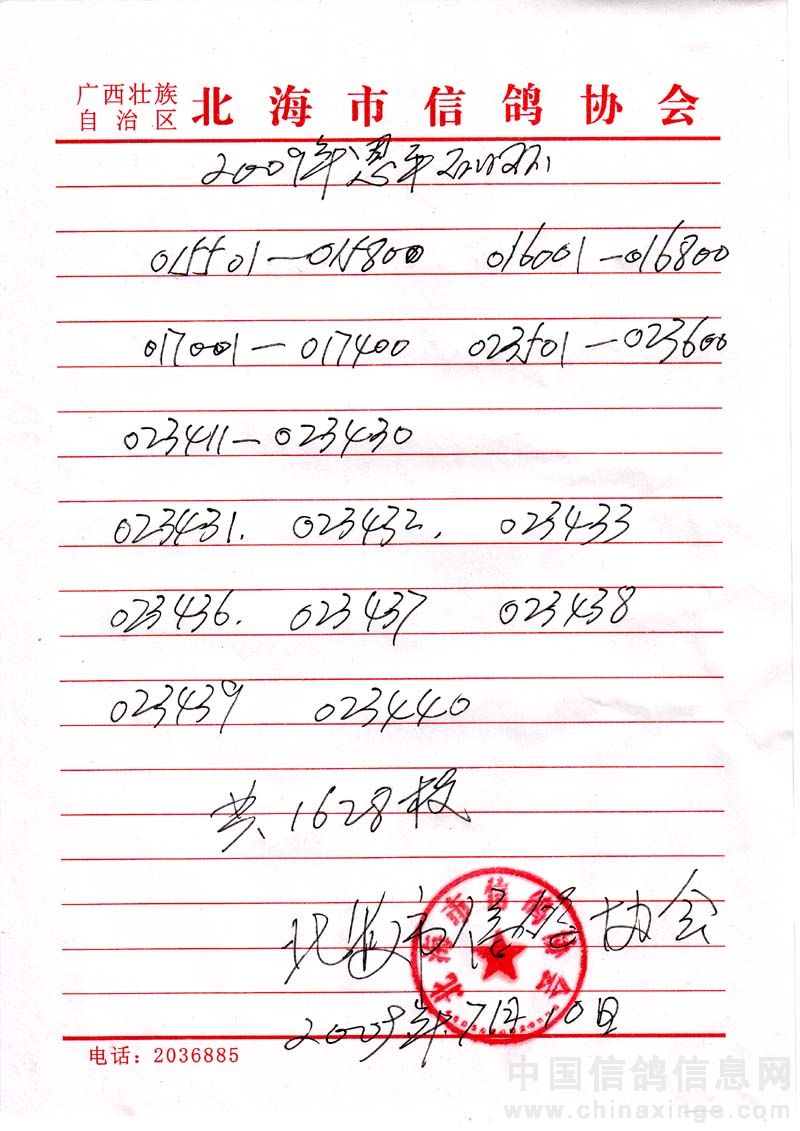 广西壮族
自治区 北海市信鸽协会
2009年恩平
015501—015800 016001—016800
017001—017400 023501—023600
023411—023430
023431. 023432. 023433
023436. 023437 023438
023439 023440
共1628枚
北海市信鸽协会
北海市信鸽协会
2009年7月10日
电话：2036885
中国信鸽信息网
www.chinaxinge.com